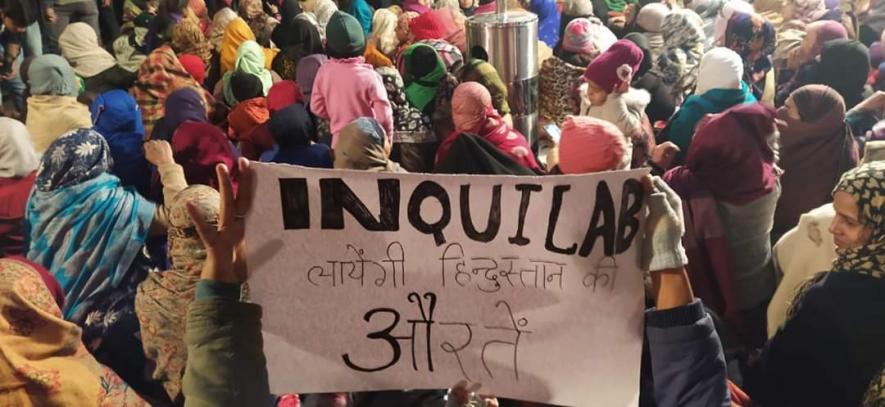 INQUILAB
लायेंगी हिन्दुस्तान की
औरतें